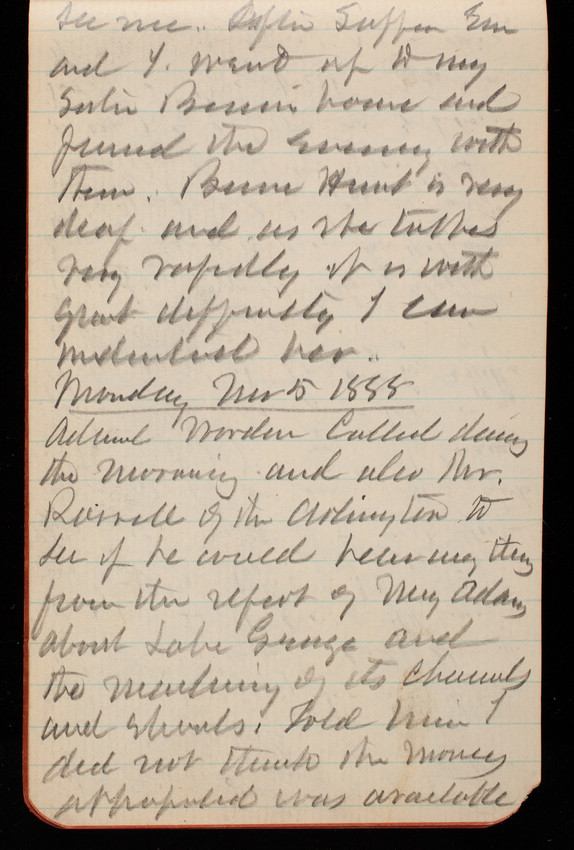 see me. After Supper Em
and I. went up to my
Sister Bessie house and
found the Evening with
them. Hunt is very
deaf and as she talks
very rapidly it is with
great difficulty I can
understand her.
Monday Nov 5 1888
Adml Worden Called during
the morning and also Mr.
Roessle of the Arlington to
see if he could hear any thing
from the report of Maj Adams
about Lake George and
the marking of its channels
and shoals. Told him I
did not think the money
appropriated was available